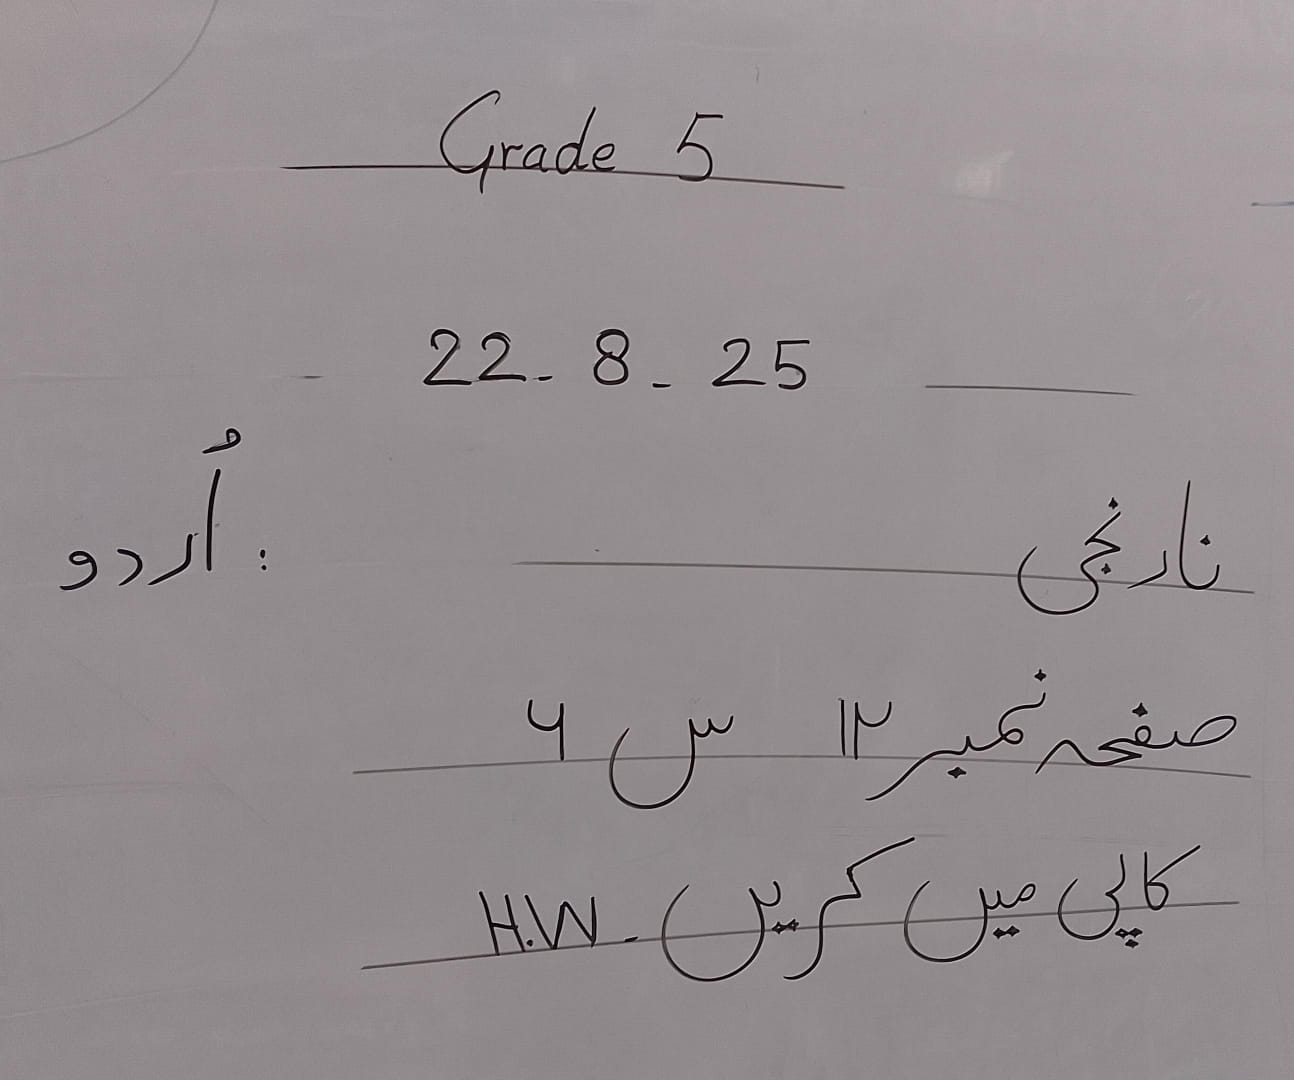 Grade 5
22-8-25
اُردو :
نارنجی
صفحہ نمبر ۱۲ س ۶
کاپی میں کریں - H.W